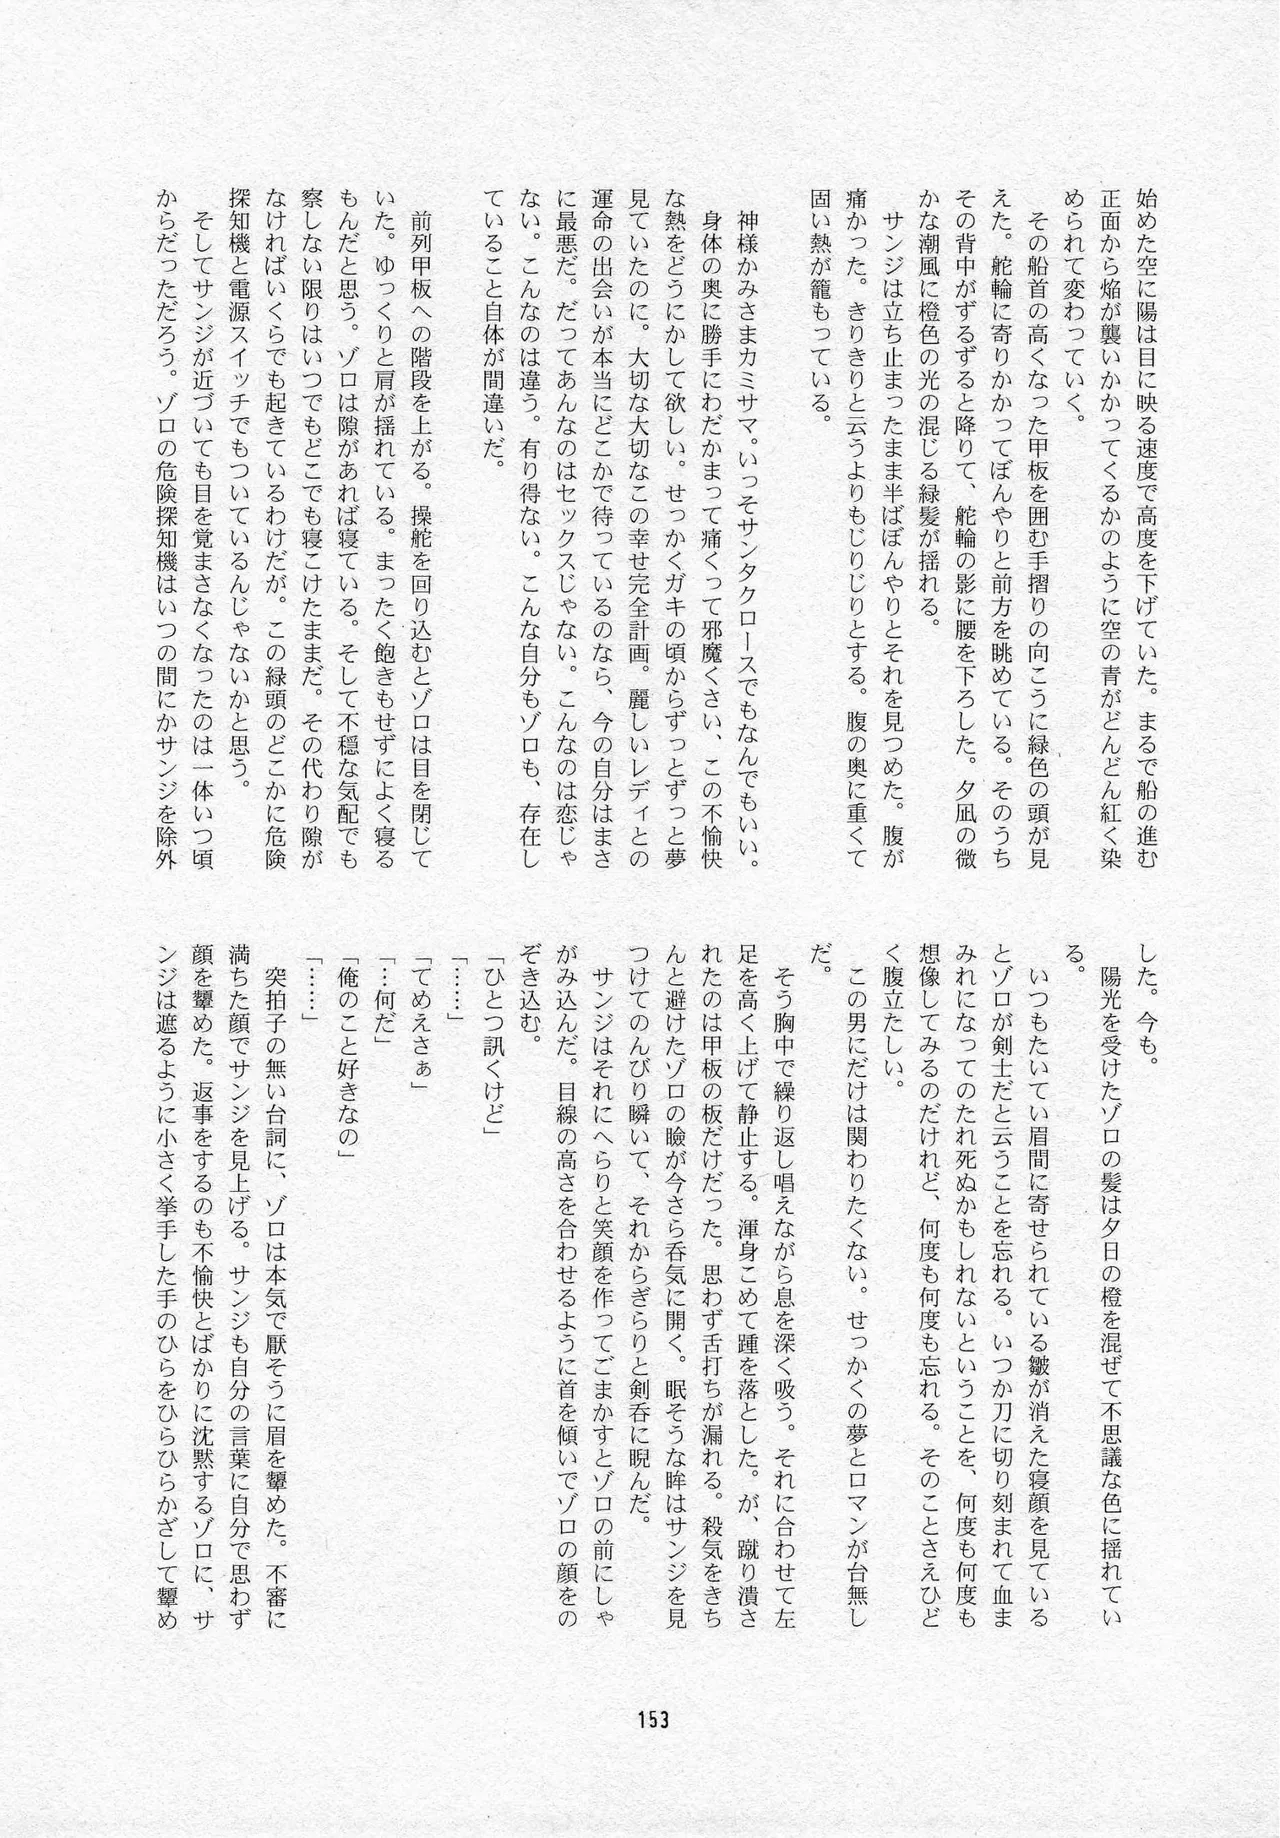 始めた空に陽は目に映る速度で高度を下げていた。まるで船の進む
正面から焔が襲いかかってくるかのように空の青がどんどん紅く染
められて変わっていく。
その船首の高くなった甲板を囲む手摺りの向こうに緑色の頭が見
えた。舵輪に寄りかかってぼんやりと前方を眺めている。そのうち
その背中がずるずると降りて、舵輪の影に腰を下ろした。夕凪の微
かな潮風に橙色の光の混じる緑髪が揺れる。
サンジは立ち止まったまま半ばぼんやりとそれを見つめた。腹が
痛かった。きりきりと云うよりもじりじりとする。腹の奥に重くて
固い熱が籠もっている。
神様かみさまカミサマ。いっそサンタクロースでもなんでもいい。
身体の奥に勝手にわだかまって痛くって邪魔くさい、この不愉快
な熱をどうにかして欲しい。せっかくガキの頃からずっとずっと夢
見ていたのに。大切な大切なこの幸せ完全計画。麗しいレディとの
運命の出会いが本当にどこかで待っているのなら、今の自分はまさ
に最悪だ。だってあんなのはセックスじゃない。こんなのは恋じゃ
ない。こんなのは違う。有り得ない。こんな自分もゾロも、存在し
ていること自体が間違いだ。
前列甲板への階段を上がる。操舵を回り込むとゾロは目を閉じて
いた。ゆっくりと肩が揺れている。まったく飽きもせずによく寝る
もんだと思う。ゾロは隙があれば寝ている。そして不穏な気配でも
察しない限りはいつでもどこでも寝こけたままだ。その代わり隙が
なければいくらでも起きているわけだが。この緑頭のどこかに危険
探知機と電源スイッチでもついているんじゃないかと思う。
そしてサンジが近づいても目を覚まさなくなったのは一体いつ頃
からだっただろう。ゾロの危険探知機はいつの間にかサンジを除外
した。今も。
陽光を受けたゾロの髪は夕日の橙を混ぜて不思議な色に揺れてい
る。
いつもたいてい眉間に寄せられている皺が消えた寝顔を見ている
とゾロが剣士だと云うことを忘れる。いつか刀に切り刻まれて血ま
みれになってのたれ死ぬかもしれないということを、何度も何度も
想像してみるのだけれど、何度も何度も忘れる。そのことさえひど
く腹立たしい。
この男にだけは関わりたくない。せっかくの夢とロマンが台無し
だ。
そう胸中で繰り返し唱えながら息を深く吸う。それに合わせて左
足を高く上げて静止する。渾身こめて踵を落とした。が、蹴り潰さ
れたのは甲板の板だけだった。思わず舌打ちが漏れる。殺気をきち
んと避けたゾロの瞼が今さら呑気に開く。眠そうな眸はサンジを見
つけてのんびり瞬いて、それからぎらりと剣呑に睨んだ。
サンジはそれにへらりと笑顔を作ってごまかすとゾロの前にしゃ
がみ込んだ。目線の高さを合わせるように首を傾いでゾロの顔をの
ぞき込む。
「ひとつ訊くけど」
「……」
「てめえさぁ」
「…何だ」
「俺のこと好きなの」
「……」
突拍子の無い台詞に、ゾロは本気で厭そうに眉を顰めた。不審に
満ちた顔でサンジを見上げる。サンジも自分の言葉に自分で思わず
顔を顰めた。返事をするのも不愉快とばかりに沈黙するゾロに、サ
ンジは遮るように小さく挙手した手のひらをひらひらかざして顰め
153